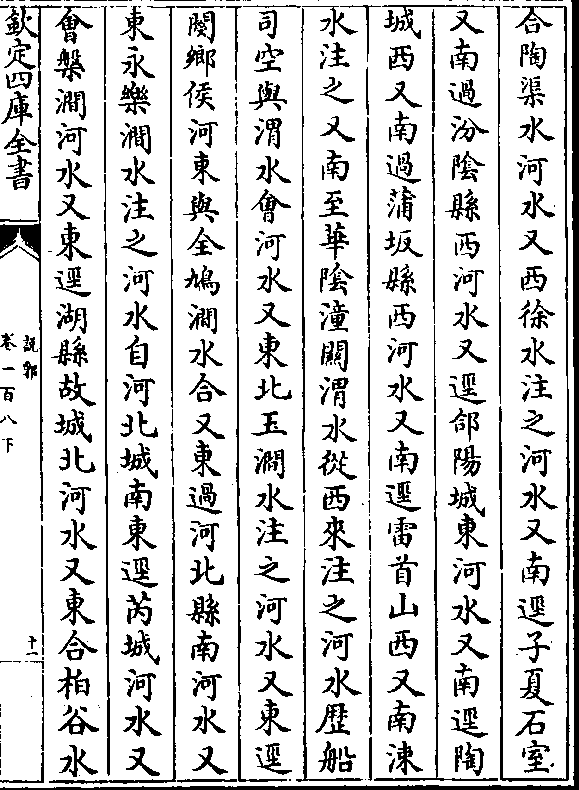 合陶渠水河水又西徐水注之河水又南逕子夏石室
又南過汾陰縣西河水又逕郃陽城東河水又南逕陶
城西又南過蒲坂縣西河水又南逕雷首山西又南涑
水注之又南至華陰潼關渭水從西來注之河水歴船
司空與渭水會河水又東北玉澗水注之河水又東逕
閿鄉侯河東與全鳩澗水合又東過河北縣南河水又
東永樂澗水注之河水自河北城南東逕芮城河水又
會槃澗河水又東逕湖縣故城北河水又東合柏谷水
欽定四庫全書
說郛
卷一百八下
十一